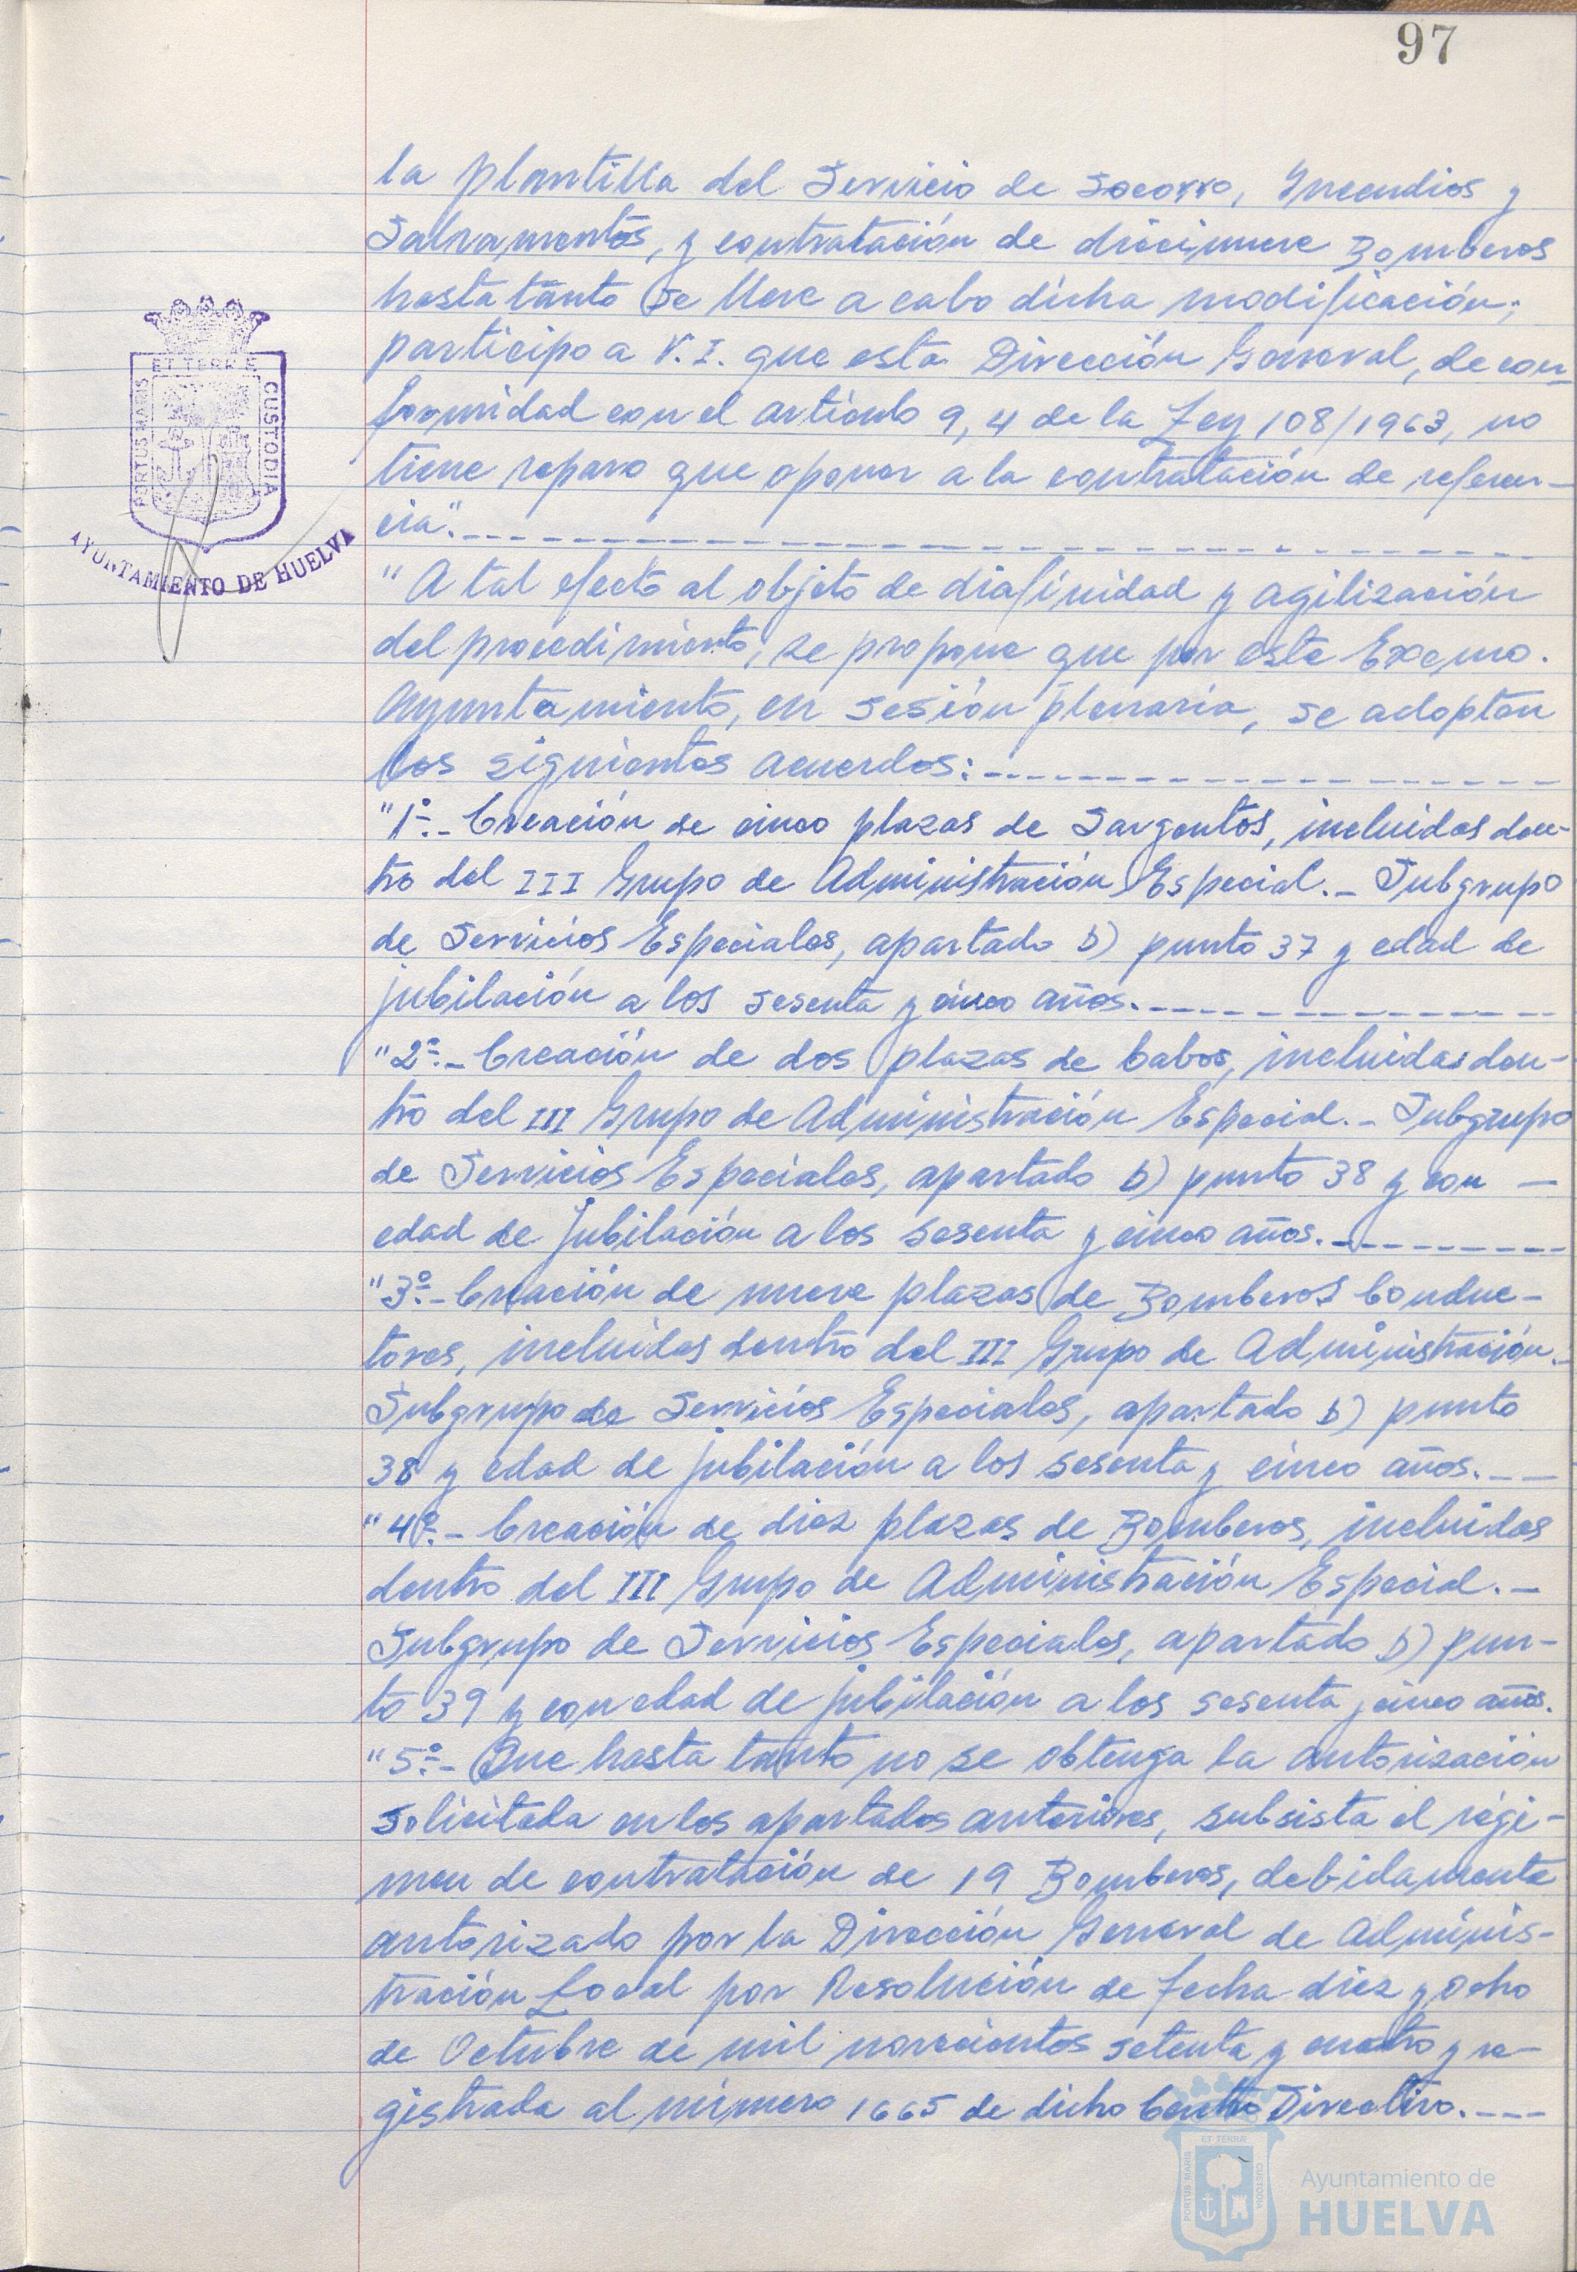 97
la plantilla del Servicio de Socorro, Incendios y
Salvamentos, y contratación de diecinueve Bomberos
hasta tanto se lleve a cabo dicha modificación;
participo a V.I. que esta Dirección General, de con-
formidad con el artículo 9, 4 de la Ley 108/1963, no
tiene reparo que oponer a la contratación de referen-
cia".
"A tal efecto al objeto de diafinidad y agilización
del procedimiento, se propone que por este Excmo.
Ayuntamiento, en sesión plenaria, se adopten
los siguientes acuerdos:
"1º.- Creación de cinco plazas de Sargentos, incluidas den-
tro del III Grupo de Administración Especial.- Subgrupo
de Servicios Especiales, apartado b) punto 37 y edad de
jubilación a los sesenta y cinco años.
"2º.- Creación de dos plazas de Cabos, incluidas den-
tro del III Grupo de Administración Especial.- Subgrupo
de Servicios Especiales, apartado b) punto 38 y con
edad de jubilación a los sesenta y cinco años.
"3º.- Creación de nueve plazas de Bomberos Conduc-
tores, incluidas dentro del III Grupo de Administración.-
Subgrupo de Servicios Especiales, apartado b) punto
38 y edad de jubilación a los sesenta y cinco años.
"4º.- Creación de diez plazas de Bomberos, incluidas
dentro del III Grupo de Administración Especial.-
Subgrupo de Servicios Especiales, apartado b) pun-
to 39 y con edad de jubilación a los sesenta y cinco años.
"5º.- Que hasta tanto no se obtenga la autorización
solicitada en los apartados anteriores, subsista el régi-
men de contratación de 19 Bomberos, debidamente
autorizado por la Dirección General de Adminis-
tración Local por Resolución de fecha diez y ocho
de Octubre de mil novecientos setenta y cuatro y re-
gistrada al número 1665 de dicho Centro Directivo.
PORTUS MARIS ET TERRÆ CUSTODIA
AYUNTAMIENTO DE HUELVA
PORTUS MARIS ET TERRÆ CUSTODIA
Ayuntamiento de
HUELVA